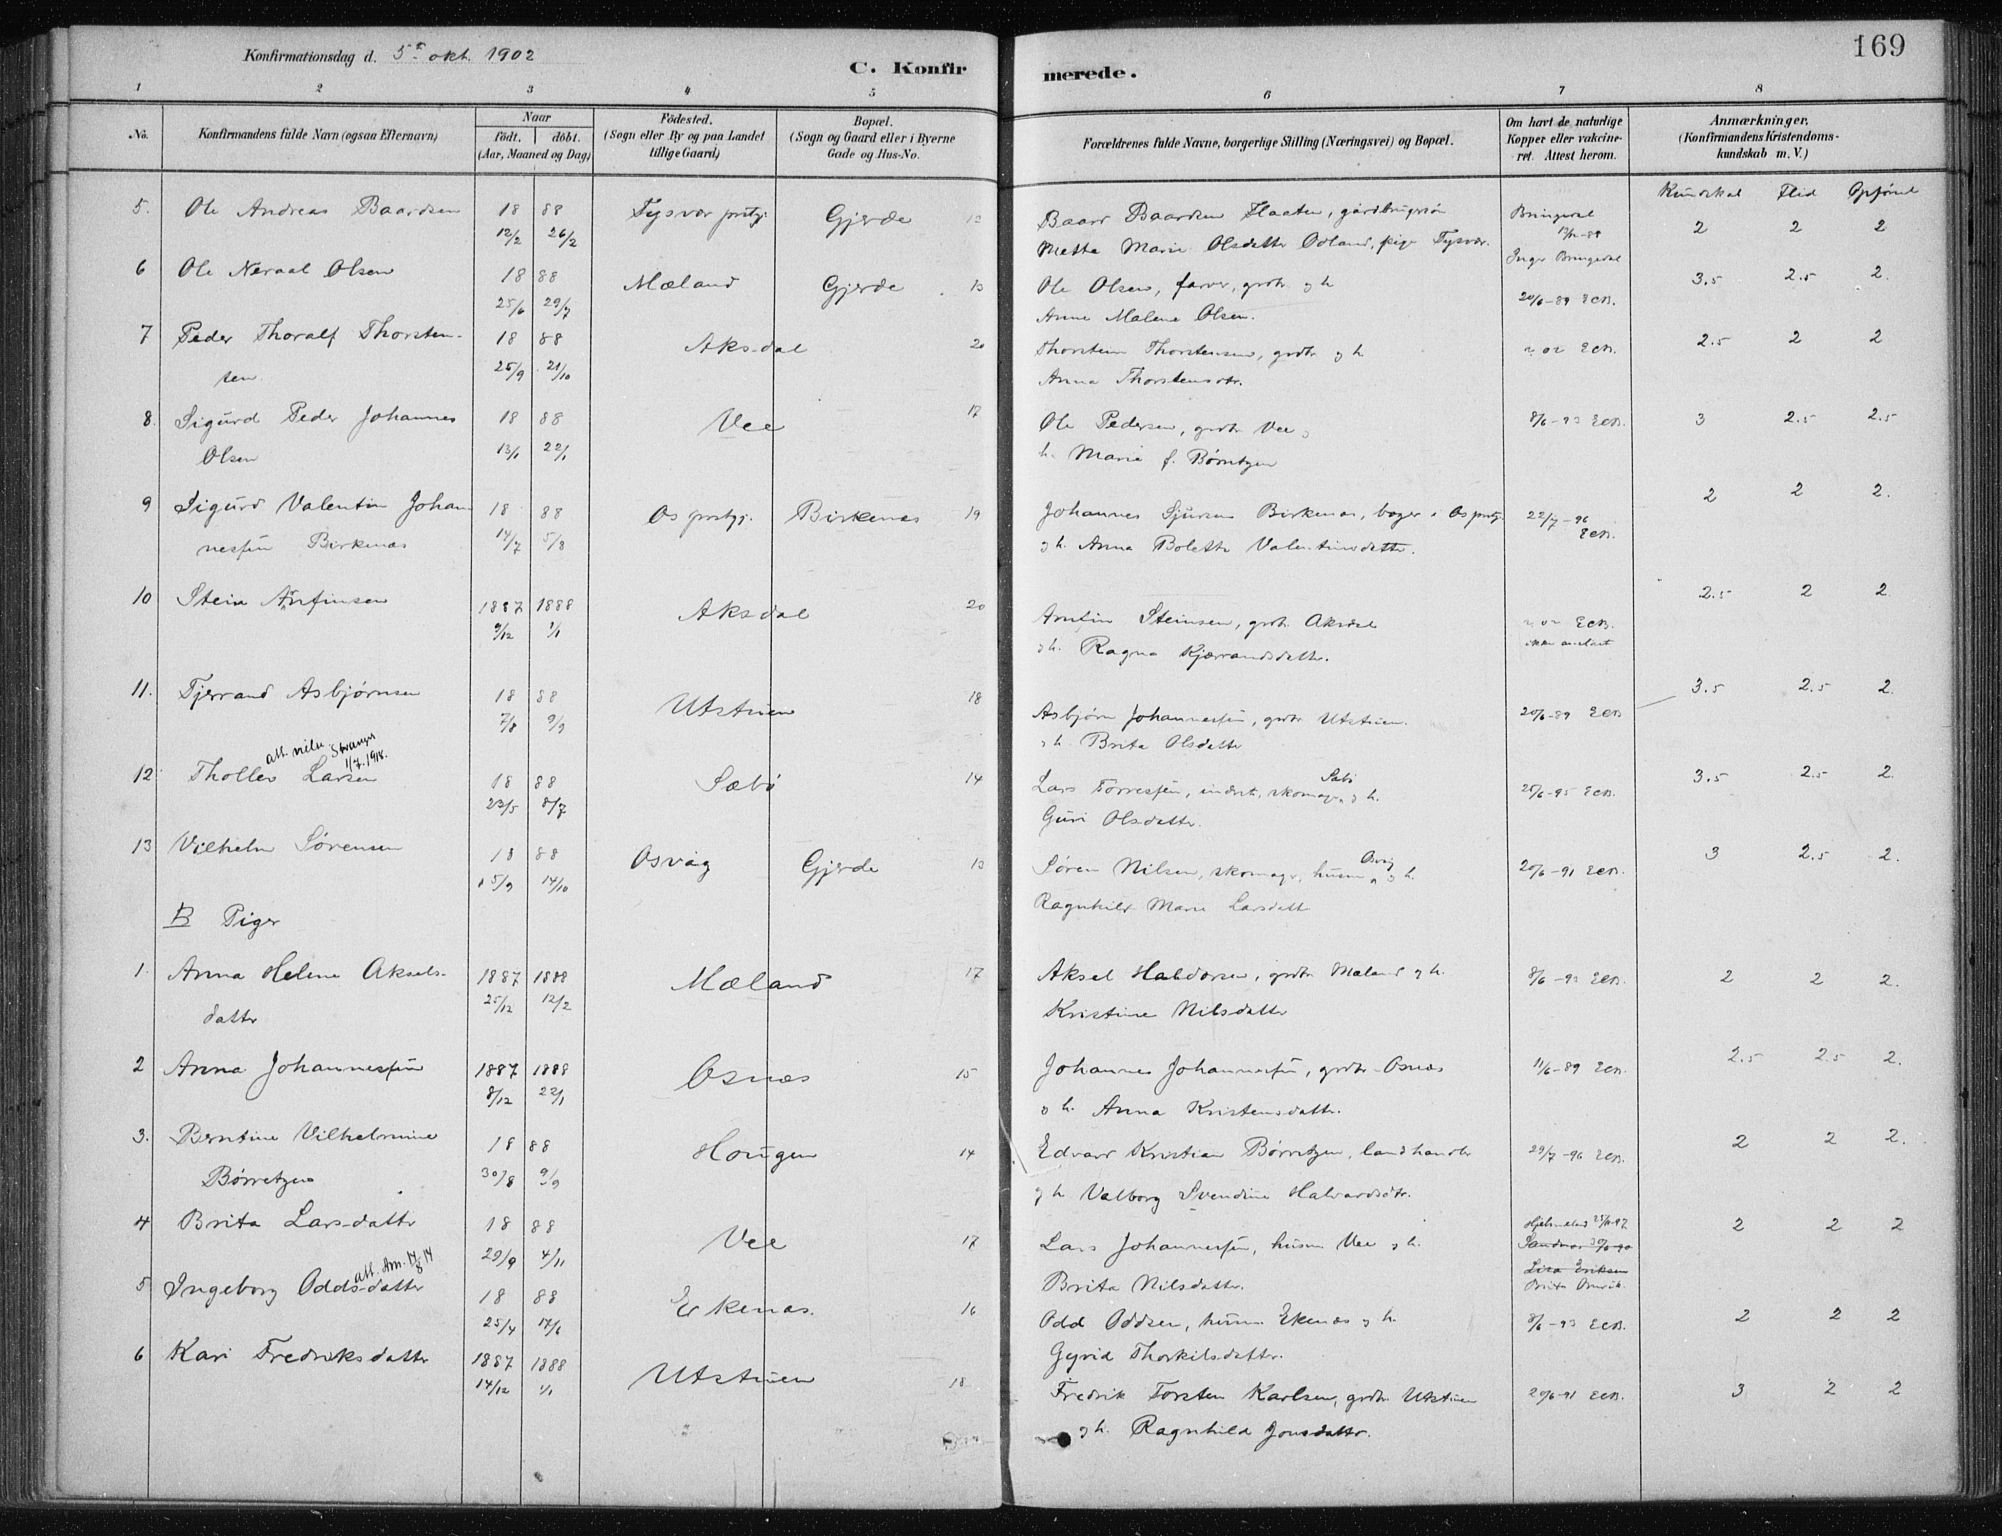 Konfirmationsdag d. 5te okt. 1902
C. Konfirmerede.
169
1 2 3 4 5 6 7 8
No.
Konfirmandens fulde Navn (ogsaa Efternavn)
Naar
födt. döbt.
(Aar, Maaned og Dag)
Födested.
(Sogn eller By og paa Landet
tillige Gaard)
Bopæl.
(Sogn og Gaard eller i Byerne
Gade og Hus-No.
Forældrenes fulde Navne, borgerlige Stilling (Næringsvei) og Bopæl.
Om havt de naturlige
Kopper eller vakcine-
ret. Attest herom.
Anmærkninger,
(Konfirmandens Kristendoms-
kundskab m. V.)
Kundskab Flid Opførsel
5. Ole Andreas Baardsen 18 88 Tysvær prstgj. Gjerde Baard Baardsen Flaaten, gårdbrugersøn Bringedal 2 2 2
12/2 26/2 Mette Marie Olsdatter Odland, pige Tysvær. Inger Bringedal
6 Ole Neraal Olsen 18 88 Mæland Gjerde 13 Ole Olsen, farver, grdbr. og h 3.5 2.5 2.
25/6 29/7 Anne Malene Olsen. 20/6-89 ECB.
7 Peder Thoralf Thorsten- 18 88 Aksdal 20 Thorstein Thorstensen, grdbr. og h ECB. 2.5 2 2
sen. 25/9 21/10 Anna Thorstensdtr.
8. Sigurd Peder Johannes 18 88 Vee 17 Ole Pedersen, grdbr. Vee og 8/6-93 ECB. 3 2.5 2.5
Olsen 13/1 22/1 h. Marie f. Børretzen
9 Sigurd Valentin Johan 18 88 Os prstgj. Birkenæs 19 Johannes Sjursen Birkenæs, bager i Os prstgj. 22/7-96 2 2 2.
nessen Birkenæs 14/7 5/8 og h. Anna Bolette Valentinsdatter. ECB.
10 Stein Arnfinsen 1887 1888 Aksdal 20 Arnfin Steinsen, grdbr. Aksdal ECB. 2.5 2 2
9/12 1/1 og h. Ragna Kjærrandsdatter. ikke anslået
11. Tjerrand Asbjørnsen 18 88 Utstuen 18 Asbjørn Johannessen, grdbr. Utstuen 20/6-89 ECB 3.5 2.5 2.
7/8 9/9 og h. Brita Olsdatter
att. Stranger
1/7.1918.
12 Thollev Larsen 18 88 Sæbø 14 Lars Torressen, inderst, skomager Sæbø og h. 25/6-95 ECB. 3.5 2.5 2.
23/5 8/7 Guri Olsdatter.
13 Vilhelm Sørensen 18 88 Osvåg Gjerde 13 Søren Nilsen, skomager, husm. Osvåg og h. 20/6-91 ECB. 3 2.5 2.
15/9 14/10 Ragnhild Marie Larsdatt
B Piger
1. Anna Helene Aksels- 1887 1888 Mæland 17 Aksel Haldorsen, grdbr. Mæland og h. 8/6-93 ECB. 2 2 2.
datter 25/12 12/2 Kristine Nilsdatter
2 Anna Johannessen 1887 1888 Osnæs 15 Johannes Johannessen, grdbr. Osnæs 11/6-89 ECB. 2.5 2.5 2.
8/12 22/1 og h. Anna Kristensdatter.
3. Berntine Vilhelmine 18 88 Hougen 14 Edvard Kristian Børretzen, landhandler 29/7-96 ECB. 2 2 2.
Børretzen 30/8 9/9 og h Valborg Svendine Halvardsdtr.
4 Brita Larsdatter 18 88 Vee 17 Lars Johannessen, husm. Vee og h. 2 2 2
29/9 4/11 Brita Nilsdatter. Lisa Eriksen
att. Am. 17/8 14
5 Ingeborg Oddsdatter 18 88 Ekenæs. 16 Odd Oddsen, husm. Ekenæs og h. 8/6-93 ECB. 2 2 2
25/4 17/6 Gyrid Thorkilsdatter.
6 Kari Fredriksdatter 1887 1888 Utstuen 18 Fredrik Torsten Karlsen, grdbr. Utstuen 20/6-91 ECB. 3 2 2
14/12 1/1 og h. Ragnhild Jonsdatter.